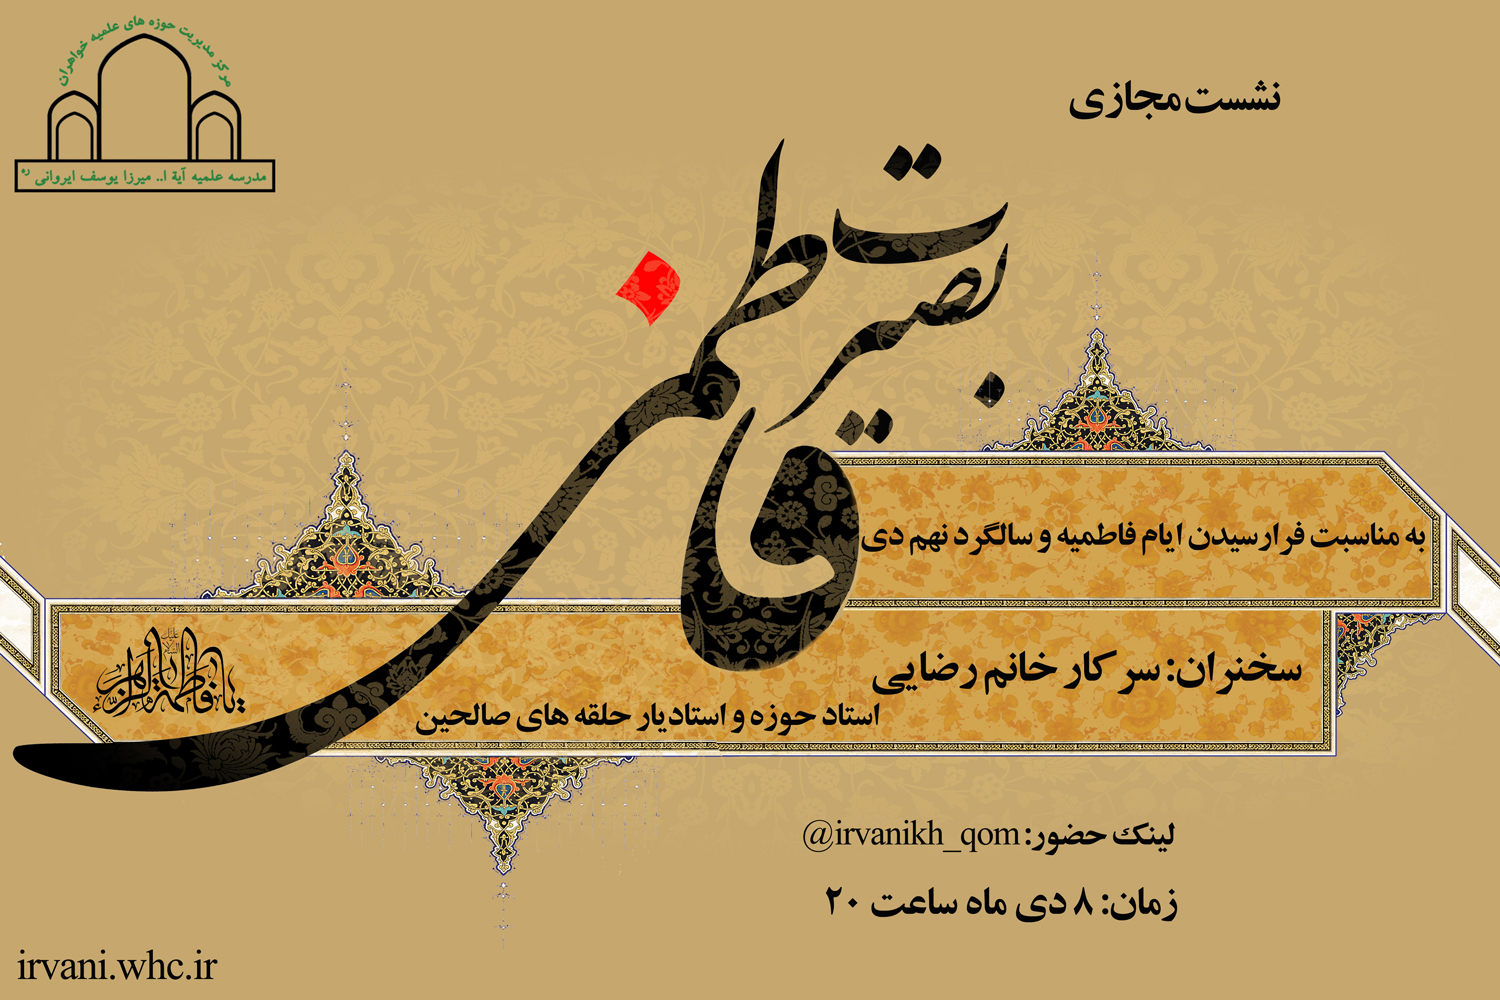 مرکز مدیریت حوزه های علمیه خواهران
مدرسه علمیه آیة ا.. میرزا یوسف ایروانی ره
نشست مجازی
بصیرت فاطمی
به مناسبت فرارسیدن ایام فاطمیه و سالگرد نهم دی
سخنران: سرکار خانم رضایی
استاد حوزه و استادیار حلقه های صالحین
یا فاطمة الزهراء
لینک حضور: @irvanikh_qom
زمان: ۸ دی ماه ساعت ۲۰
irvani.whc.ir